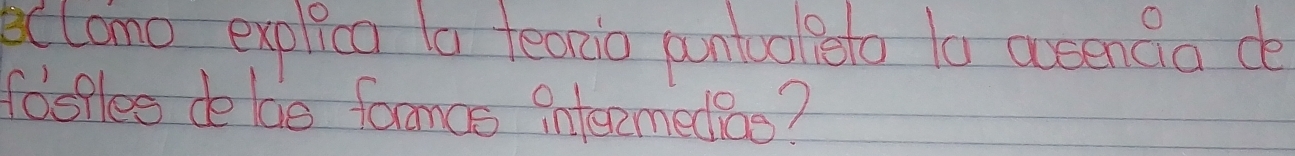 ¿Cómo explica la teoría puntualista la ausencia de
fósiles de las formas intermedias?